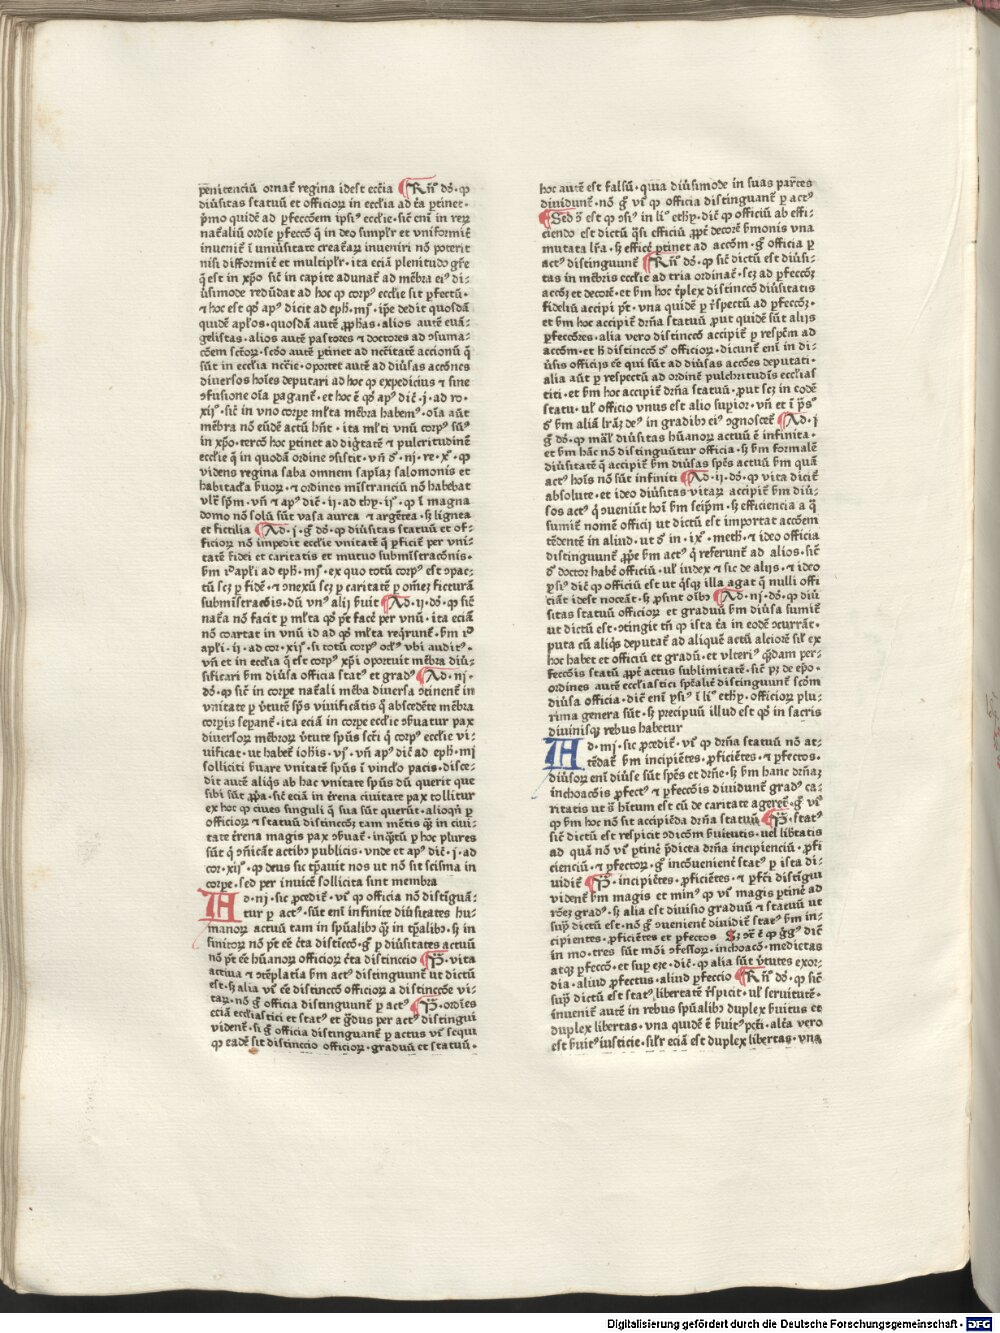 penitenciū ornat̄ regina idest eccīa Rn̄ dō· ꝙ
diūsitas statuū et officioꝝ in eccīia ad t̄a ꝑtinet·
pͥmo quidē ad ꝑfeccōem ipsiꝰ ecclie· sic̄ enī in rerꝝ
nat̄aliū ordīe ꝑfeccō q̄ in deo simplr̄ et vniformit̄
inuenit̄ ī uniūsitate creat̄arꝝ inueniri nō poterit
nisi difformit̄ et multiplr̄· ita eciā plenitudo gr̄e
q̄ est in xp̄o sic̄ in capite adunat̄ ad mēbra eiꝰ di⸗
ūsimode redūdat ad hoc ꝙ corpꝰ ecclie sit ꝑfectū·
⁊ hoc est qͦs̄ apꝰ dicit ad eph· iiij· ip̄e dedit quosdā
quidē apl̄os· quosdā autē ꝓphas· alios autē euā⸗
gelistas· alios autē pastores ⁊ doctores ad ↄsuma⸗
cōem sct̄oꝝ· scd̄o autē ꝑtinet ad nc̄citatē accionū q̄
sūt in ecclīa nccīe· oportet autē ad diūsas accōnes
diuersos hoīes deputari ad hoc ꝙ expedicius ⁊ sine
ↄfusione oīa pagant̄· et hoc ē qͦs̄ apꝰ dic̄· j· ad ro·
xijͦ· sic̄ in vno corpe ml̄ta mēbra habemꝰ· oīa aūt
mēbra nō eūdē actū hn̄t· ita ml̄ti vnū corpꝰ sūꝰ
in xp̄o· tercō hoc ꝑtinet ad dig̓tatē ⁊ pulcritudinē
ecclie q̄ in quodā ordine ↄsistit· vn̄ dͬ· iij· re· xͦ· ꝙ
videns regina saba omnem sapīaꝫ salomonis et
habitacl̄a b̓uoꝝ· ⁊ ordines mīstranciū nō habebat
vlt̓ spm̄· vn̄ ⁊ apꝰ dic̄· ij· ad thy· ijͦ· ꝙ ī magna
domo nō solū sūt vasa aurea ⁊ argētea· sꝫ lignea
et fictilia Ad· j· ḡ dō· ꝙ diūsitas statuū et of⸗
ficioꝝ nō impedit ecclie vnitatē q̄ ꝑficit̄ per vni⸗
tatē fidei et caritatis et mutuo submīstracōnis·
b̄m iͦꝰ apl̄i ad eph· iiijͦ· ex quo totū corpꝰ est ↄpac⸗
tū scꝫ ꝑ fidē· ⁊ ↄnexū scꝫ ꝑ caritatē ꝑ om̄eꝫ ficturā
submīstracōis· dū vnꝰ alij b̓uit Ad· ij· dō· ꝙ sic̄
nat̄a nō facit ꝑ ml̄ta qͦs̄ pt̄ facē per vnū· ita eciā
nō coartat in vnū id ad qͦs̄ ml̄ta reqͥrunt̄· b̄m iͦꝰ
apl̄i· ij· ad cor· xijͦ· si totū corpꝰ oclꝰ vbi auditꝰ·
vn̄ et in ecclīa q̄ est corpꝰ xp̄i oportuit mēbra diū⸗
sificari b̄m diūsa officia statꝰ et gradꝰ Ad· iij·
dō· ꝙ sic̄ in corpe nat̄ali mēba diuersa ↄtinent̄ in
vnitate ꝑ v̓tutē spūs viuificātis q̄ abscedēte mēbra
corpis sepant̄· ita eciā in corpe ecclie ↄb̓uatur pax
diuersoꝝ mēbroꝝ v̓tute spūs sct̄i q̄ corpꝰ ecclie vi⸗
uificat· ut habet̄ iohīs· vjͦ· vn̄ apꝰ dic̄ ad eph· iiij
solliciti b̓uare vnitatē spūs ī vincl̄o pacis· disce⸗
dit autē aliqͥs ab hac vnitate spūs dū querit que
sibi sūt ꝓp̄a· sic̄ eciā in t̓rena ciuitate pax tollitur
ex hoc ꝙ ciues singuli q̄ sua sūt querūt· alioqn̄ ꝑ
officioꝝ ⁊ statuū distinccōꝫ tam mētis qͣꝫ in ciui⸗
tate t̓rena magis pax ↄb̓uat̄· inqͣtū ꝑ hoc plures
sūt q̄ ↄīcāt actibꝰ publicis· vnde et apꝰ dic̄· j· ad
cor· xijͦ· ꝙ deus sic tꝑauit nos ut nō sit scisma in
corpe· sed per inuicē sollicita sint membra
Ad· iij· sic ꝓcedit̄· vr̄ ꝙ officia nō distiguā⸗
tur ꝑ actꝰ· sūt enī infinite diūsitates hu⸗
manoꝝ actuū tam in spūalibꝫ qͣꝫ in tꝑalibꝫ· sꝫ in
finitoꝝ nō pt̄ eē c̓ta disticcō· ḡ ꝑ diūsitates actuū
nō pt̄ eē hūanoꝝ officioꝝ c̓ta distinccio P̄· vita
actiua ⁊ ↄtēplatīa b̄m actꝰ distinguunt̄ ut dictū
est· sꝫ alia vr̄ eē distinccō officioꝝ a distinccōe vi⸗
taꝝ· nō ḡ officia distinguunt̄ ꝑ actꝰ P̄· ordīes
eciā eccīiastici et statꝰ et gͣdus per actꝰ distingui
vident̄· si ḡ officia distinguant̄ ꝑ actus vr̄ sequi
ꝙ eadē sit distinccio officioꝝ· graduū et statuū·
hoc autē est falsū· quia diūsimode in suas partes
diuidunt̄· nō ḡ vr̄ ꝙ officia distinguant̄ ꝑ actꝰ
Sed ↄ̄ est ꝙ ↄsiꝰ in liͦ ethy· dic̄ ꝙ officiū ab effi⸗
ciendo est dictū qͣsi efficiū ꝓpt̄ decorē b̓monis vna
mutata lr̄a· sꝫ efficē ꝑtinet ad accōm· ḡ officia ꝑ
actꝰ distinguunt̄ Rn̄ dō· ꝙ sic̄ dictū est diūsi⸗
tas in mēbris ecclīe ad tria ordinat̄· scꝫ ad ꝑfeccōꝫ
accōꝫ et decorē· et b̄m hoc tͥplex distinccō diūsitatis
fideliū accipi pt̄· vna quidē ꝑ r̄spectū ad ꝑfeccōꝫ·
et b̄m hoc accipit̄ dr̄na statuū ꝓut quidē sūt alijs
ꝑfecc̄ores· alia vero distinccō accipit̄ ꝑ respc̄m ad
accōm· et h̄ distinccō dͬ officioꝝ· dicunt̄ enī in di⸗
ūsis officijs eē qui sūt ad diūsas accōes deputati·
alia aūt ꝑ respectū ad ordinē pulchritudīs ecclīas
titi· et b̄m hoc accipit̄ dr̄na statuū· ꝓut scꝫ in eodē
statu· ul̓ officio vnus est alio supior· vn̄ et i pͣsͦ
dͬ b̄m aliā lr̄aꝫ deꝰ in gradibꝫ eiꝰ ↄgnoscet̄ Ad· j
ḡ dō· ꝙ māl̓ diūsitas hūanoꝝ actuū ē infinita·
et b̄m hāc nō distinguūtur officia· sꝫ b̄m formalē
diūsitatē q̄ accipit̄ b̄m diūsas spēs actuū b̄m quā
actꝰ hoīs nō sūt infiniti Ad· ij· dō· ꝙ vita dicit̄
absolute· et ideo diūsitas vitaꝝ accipit̄ b̄m diū⸗
sos actꝰ q̄ ↄueniūt hoī b̄m seip̄m· sꝫ efficiencia a q̄
sumit̄ nomē officij ut dictū est importat accōem
tēdentē in aliud· ut dͬ in· ixͦ· meth· ⁊ ideo officia
distinguunt̄ ꝓp̓e b̄m actꝰ q̄ referunt̄ ad alios· sic̄
dͬ doctor habē officiū· ul̓ iudex ⁊ sic de alijs· ⁊ ideo
ysiꝰ dic̄ ꝙ officiū est ut qͥsqꝫ illa agat q̄ nulli offi
ciāt idest noceāt· sꝫ ꝓsint oībꝫ Ad· iij· dō· ꝙ diū
sitas statuū officioꝝ et graduū b̄m diūsa sumit̄
ut dictū est· ↄtingit tn̄ ꝙ ista t̄a in eodē ↄcurrāt·
puta cū aliqͥs deputat̄ ad aliquē actū alciorē sil̓ ex
hoc habet et officiū et gradū· et vlteriꝰ qͥdam per⸗
feccōis statū ꝓpt̄ actus sublimitatē· sic̄ pꝫ de epo·
ordines autē ecclesiastici spēalit̄ distinguunt̄ scdm̄
diūsa officia· dic̄ enī ysiꝰ i liͦ ethy· officioꝝ plu⸗
rima genera sūt· sꝫ precipuū illud est qͦs̄ in sacris
diuinisqꝫ rebus habetur
Ad· iiij· sic ꝓcedit̄· vr̄ ꝙ dr̄na statuū nō at⸗
tēdat̄ b̄m incipiētes· ꝓficiētes· ⁊ ꝑfectos·
diūsoꝝ enī diūse sūt spēs et dr̄ne· sꝫ b̄m hanc dr̄naꝫ
inchoacōis ꝓfectꝰ ⁊ ꝑfeccōis diuidunt̄ gradꝰ ca⸗
ritatis ut sͣ hītum est cū de caritate ageret̄· ḡ vr̄
ꝙ b̄m hoc nō sit accipiēda dr̄na statuū P̄· statꝰ
sic̄ dictū est respicit ↄdicōm b̓uitutis· uel lib̓tatis
ad quā nō vr̄ ꝑtinē p̄dicta dr̄na incipienciū· ꝓfi
cienciū· ⁊ ꝑfectoꝝ· ḡ incōuenient̄ statꝰ ꝑ ista di⸗
uidit̄ P̄· incipiētes· ꝓficiētes· ⁊ ꝑfc̄i distīgui
vident̄ b̄m magis et minꝰ ꝙ vr̄ magis ꝑtinē ad
rōeꝫ gradꝰ· sꝫ alia est diuisio graduū ⁊ statuū ut
supͣ dictū est· nō ḡ ↄuenient̄ diuidit̄ statꝰ b̄m in⸗
cipientes· ꝓficiētes et ꝑfectos Sꝫ ↄ̄ ē ꝙ gͦgꝰ dic̄
in mo· tres sūt mōi ↄfessoꝝ· inchoacō· medietas
atqꝫ ꝑfeccō· et suꝑ eze· dic̄· ꝙ alia sūt v̓tutes exor⸗
dia· aliud ꝓfectus· aliud ꝑfeccio Rn̄ dō· ꝙ sic̄
supͣ dictū est statꝰ libertatē r̄spicit· ul̓ seruitutē·
inuenit̄ autē in rebus spūalibꝫ duplex b̓uitus et
duplex libertas· vna quidē ē b̓uitꝰ pct̄i· alt̓a vero
est b̓uitꝰ iusticie· sil̓r eciā est duplex libertas· vna
Digitalisierung gefördert durch die Deutsche Forschungsgemeinschaft - DFG